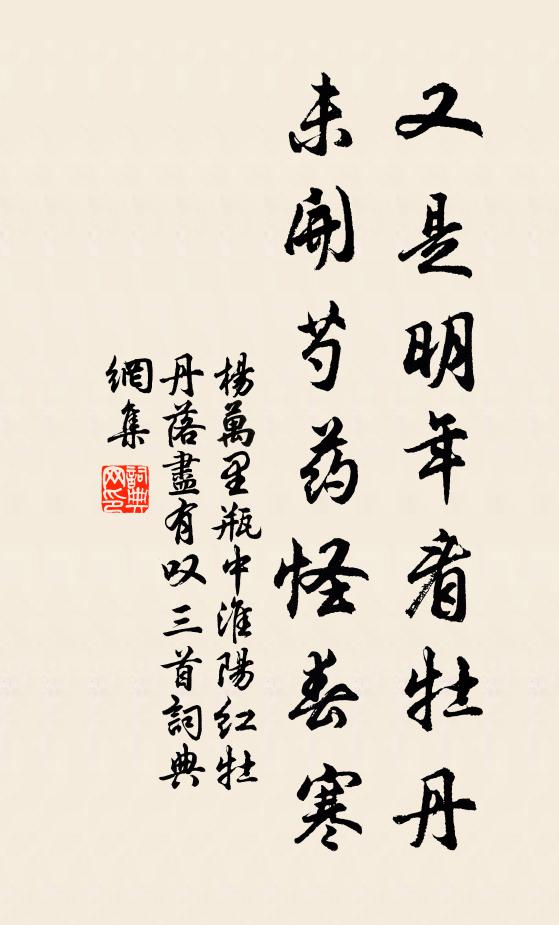 又是明年看牡丹
未開芍药怪春寒
楊萬里瓶中淮陽红牡
丹落盡有叹三首詞典
網集
詞典
网印